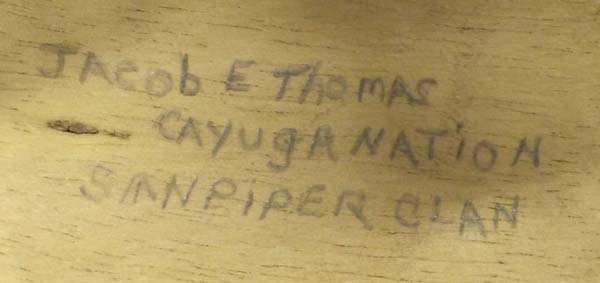 JAcob E ThomAS
CAYUgA NATiON
SANPIPER CLAN